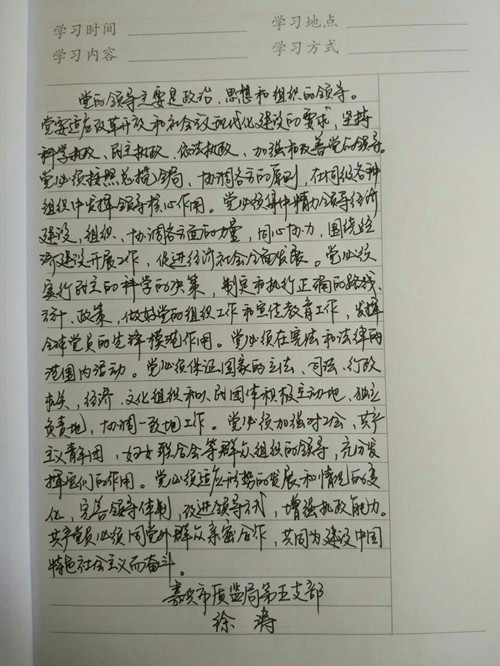 学习时间 学习地点
学习内容 学习方式
党的领导主要是政治、思想和组织的领导。
党要适应改革开放和社会主义现代化建设的要求,坚持
科学执政、民主执政、依法执政,加强和改善党的领导。
党必须按照总揽全局、协调各方的原则,在同级各种
组织中发挥领导核心作用。党必须集中精力领导经济
建设,组织、协调各方面的力量,同心协力,围绕经
济建设开展工作,促进经济社会全面发展。党必须
实行民主的科学的决策,制定和执行正确的路线、
方针、政策,做好党的组织工作和宣传教育工作,发挥
全体党员的先锋模范作用。党必须在宪法和法律的
范围内活动。党必须保证国家的立法、司法、行政
机关,经济、文化组织和人民团体积极主动地、独立
负责地、协调一致地工作。党必须加强对工会、共产
主义青年团、妇女联合会等群众组织的领导,充分发
挥它们的作用。党必须适应形势的发展和情况的变
化,完善领导体制,改进领导方式,增强执政能力。
共产党员必须同党外群众亲密合作,共同为建设中国
特色社会主义而奋斗。
嘉兴市质监局第五支部
徐涛